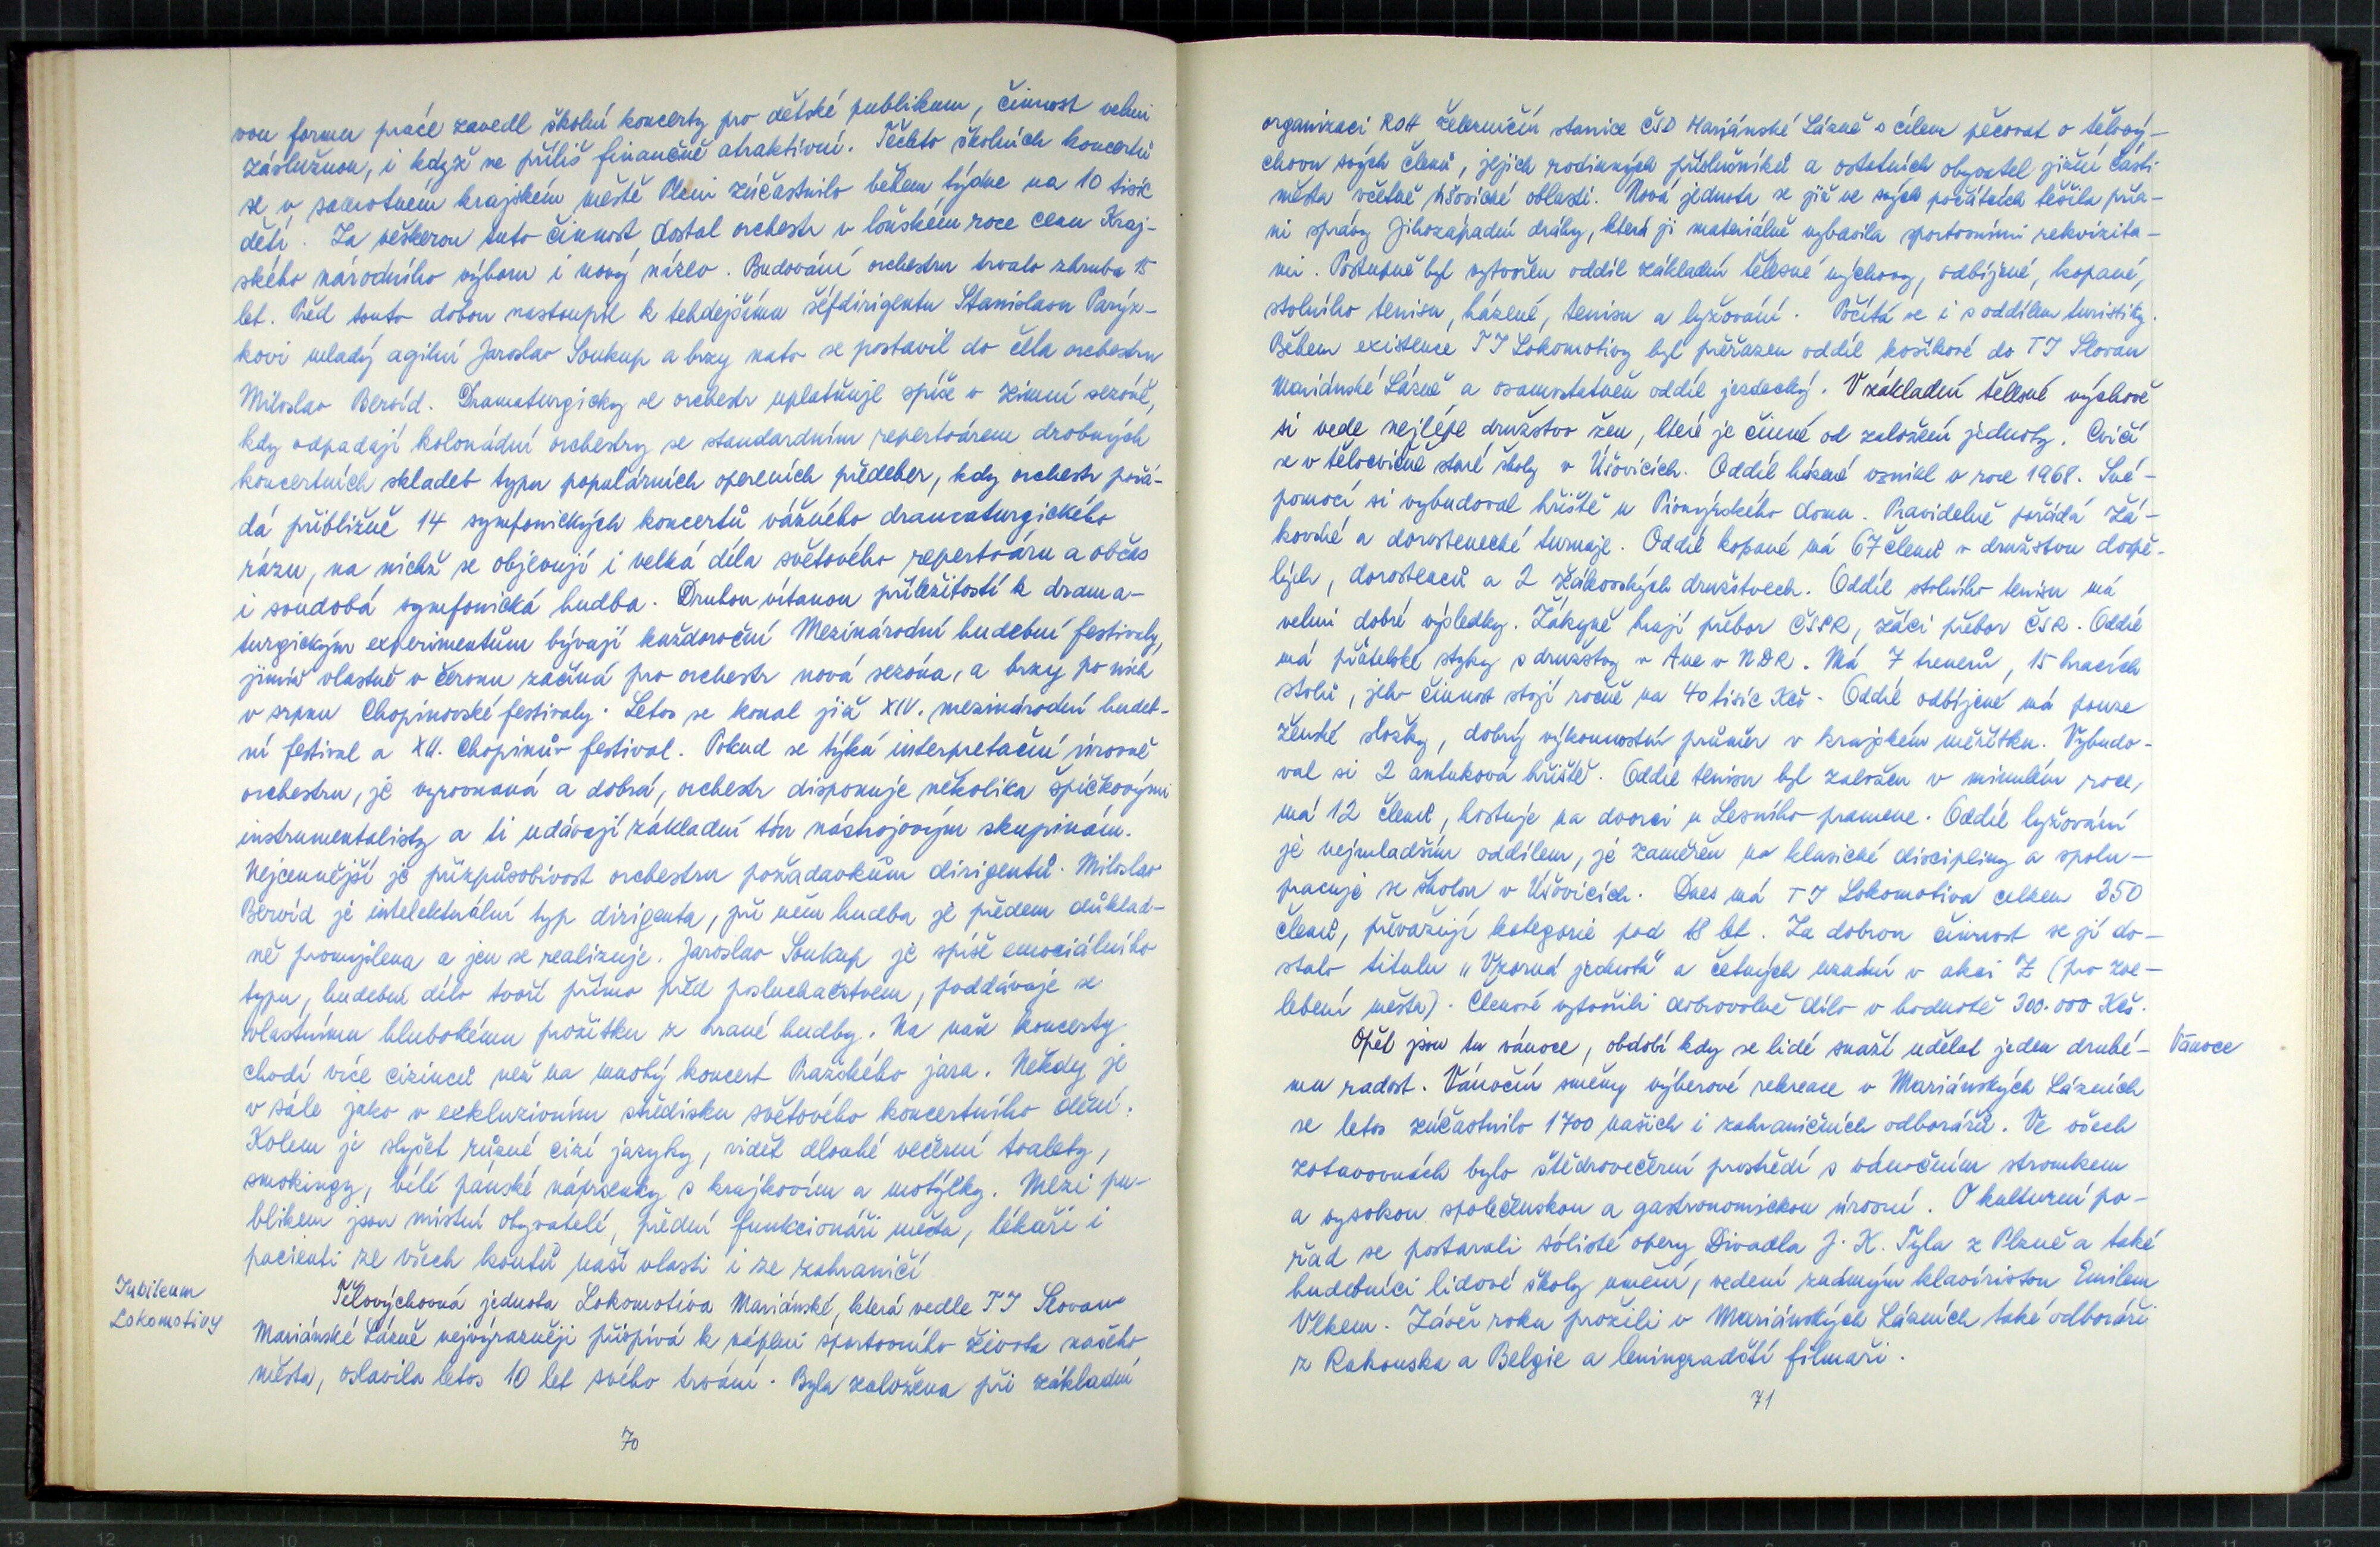 vou formu práce zavedl školní koncerty pro dětské publikum, činnost velmi
záslužnou, i když ne příliš finančně atraktivní. Těchto školních koncertů
se v samotném krajském městě Plzni zúčastnilo během týdne na 10 tisíc
dětí. Za veškerou tuto činnost dostal orchestr v loňském roce cenu Kraj-
ského národního výboru i nový název. Budování orchestru trvalo zhruba 15
let. Před touto dobou nastoupil k tehdejšímu šéfdirigentu Stanislavu Paryz-
kovi mladý agilní Jaroslav Soukup a brzy nato se postavil do čela orchestru
Miloslav Bervíd. Dramaturgicky se orchestr uplatňuje spíše v zimní sezóně,
kdy odpadají kolonádní orchestry se standardním repertoárem drobných
koncertních skladeb typu populárních operních předeher, kdy orchestr pořá-
dá přibližně 14 symfonických koncertů vážného dramaturgického
rázu, na nichž se objevují i velká díla světového repertoáru a občas
i soudobá symfonická hudba. Druhou vítanou příležitostí k drama-
turgickým experimentům bývají každoroční Mezinárodní hudební festivaly,
jimiž vlastně v červnu začíná pro orchestr nová sezóna, a brzy po nich
v srpnu Chopinovské festivaly. Letos se konal již XIV. mezinárodní hudeb-
ní festival a XII. Chopinův festival. Pokud se týká interpretační úrovně
orchestru, je vyrovnaná a dobrá, orchestr disponuje několika špičkovými
instrumentalisty a ti udávají základní tón nástrojovým skupinám.
Nejcennější je přizpůsobivost orchestru požadavkům dirigentů. Miloslav
Bervíd je intelektuální typ dirigenta, při něm hudba je předem důklad-
ně promyšlena a jen se realizuje. Jaroslav Soukup je spíše emociálního
typu, hudební dílo tvoří přímo před posluchačstvem, poddávaje se
vlastnímu hlubokému prožitku z hrané hudby. Na naše koncerty
chodí více cizinců než na mnohý koncert Pražského jara. Někdy je
v sále jako v exkluzivním středisku světového koncertního dění.
Kolem je slyšet různé cizí jazyky, vidět dlouhé večerní toalety,
smokingy, bílé pánské náprsenky s krajkovím a motýlky. Mezi pu-
blikem jsou místní obyvatelé, přední funkcionáři města, lékaři i
pacienti ze všech koutů naší vlasti i ze zahraničí
Jubileum
Lokomotivy
Tělovýchovná jednota Lokomotiva Mariánské, která vedle TJ Slovan
Mariánské Lázně nejvýrazněji přispívá k náplni sportovního života našeho
města, oslavila letos 10 let svého trvání. Byla založena při základní
70
organizaci ROH železničín stanice ČSD Mariánské Lázně s cílem pěčovat o tělový-
chovu svých členů, jejich rodinných příslušníků a ostatních obyvatel jižní části
města včetně úšovické oblasti. Nová jednota se již ve svých počátcích těšila příz-
ni správy Jihozápadní dráhy, která ji materiálně vybavila sportovními rekvizita-
mi. Postupně byl vytvořen oddíl základní tělesné výchovy, odbíjené, kopané,
stolního tenisu, házené, tenisu a lyžování. Počítá se i s oddílem turistiky.
Během existence TJ Lokomotivy byl přeřazen oddíl košíkové do TJ Slovan
Mariánské Lázně a osamostatněn oddíl jezdecký. V základní tělesné výchově
si vede nejlépe družstvo žen, které je činné od založení jednoty. Cvičí
se v tělocvičně staré školy v Úšovicích. Oddíl házené vznikl v roce 1968. Své-
pomocí si vybudoval hřiště u Pionýrského domu. Pravidelně pořádá žá-
kovské a dorostenecké turnaje. Oddíl kopané má 67 členů v družstvu dospě-
lých, dorostenců a 2 žákovských družstvech. Oddíl stolního tenisu má
velmi dobré výsledky. Žákyně hrají přebor ČSSR, žáci přebor ČSR. Oddíl
má přátelské styky s družstvy v Aue v NDR. Má 7 trenerů, 15 hracích
stolů, jeho činnost stojí ročně na 40 tisíc Kčs. Oddíl odbíjené má pouze
ženské složky, dobrý výkonnostní průměr v krajském měřítku. Vybudo-
val si 2 antuková hřiště. Oddíl tenisu byl založen v minulém roce,
má 12 členů, hostuje na dvorci u Lesního pramene. Oddíl lyžování
je nejmladším oddílem, je zaměřen na klasické discipliny a spolu-
pracuje se školou v Úšovicích. Dnes má TJ Lokomotiva celkem 350
členů, převažují kategorie pod 18 let. Za dobrou činnost se jí do-
stalo titulu "Vzorná jednota" a četných uznání v akci Z (pro zve-
lebení města). Členové vytvořili dobrovolně dílo v hodnotě 300.000 Kčs.
Opět jsou tu vánoce, období kdy se lidé snaží udělat jeden druhé-
Vánoce
mu radost. Vánoční směny výběrové rekreace v Mariánských Lázních
se letos zúčastnilo 1700 našich i zahraničních odborářů. Ve všech
zotavovnách bylo štědrovečerní prostředí s vánočním stromkem
a vysokou společenskou a gastronomickou úrovní. O kulturní po-
řad se postarali sólisté opery Divadla J. K. Tyla z Plzně a také
hudebníci lidové školy umění, vedení známým klavíristou Emilem
Vlkem. Závěr roku prožili v Mariánských Lázních také odboráři
z Rakouska a Belgie a leningradští filmaři.
71